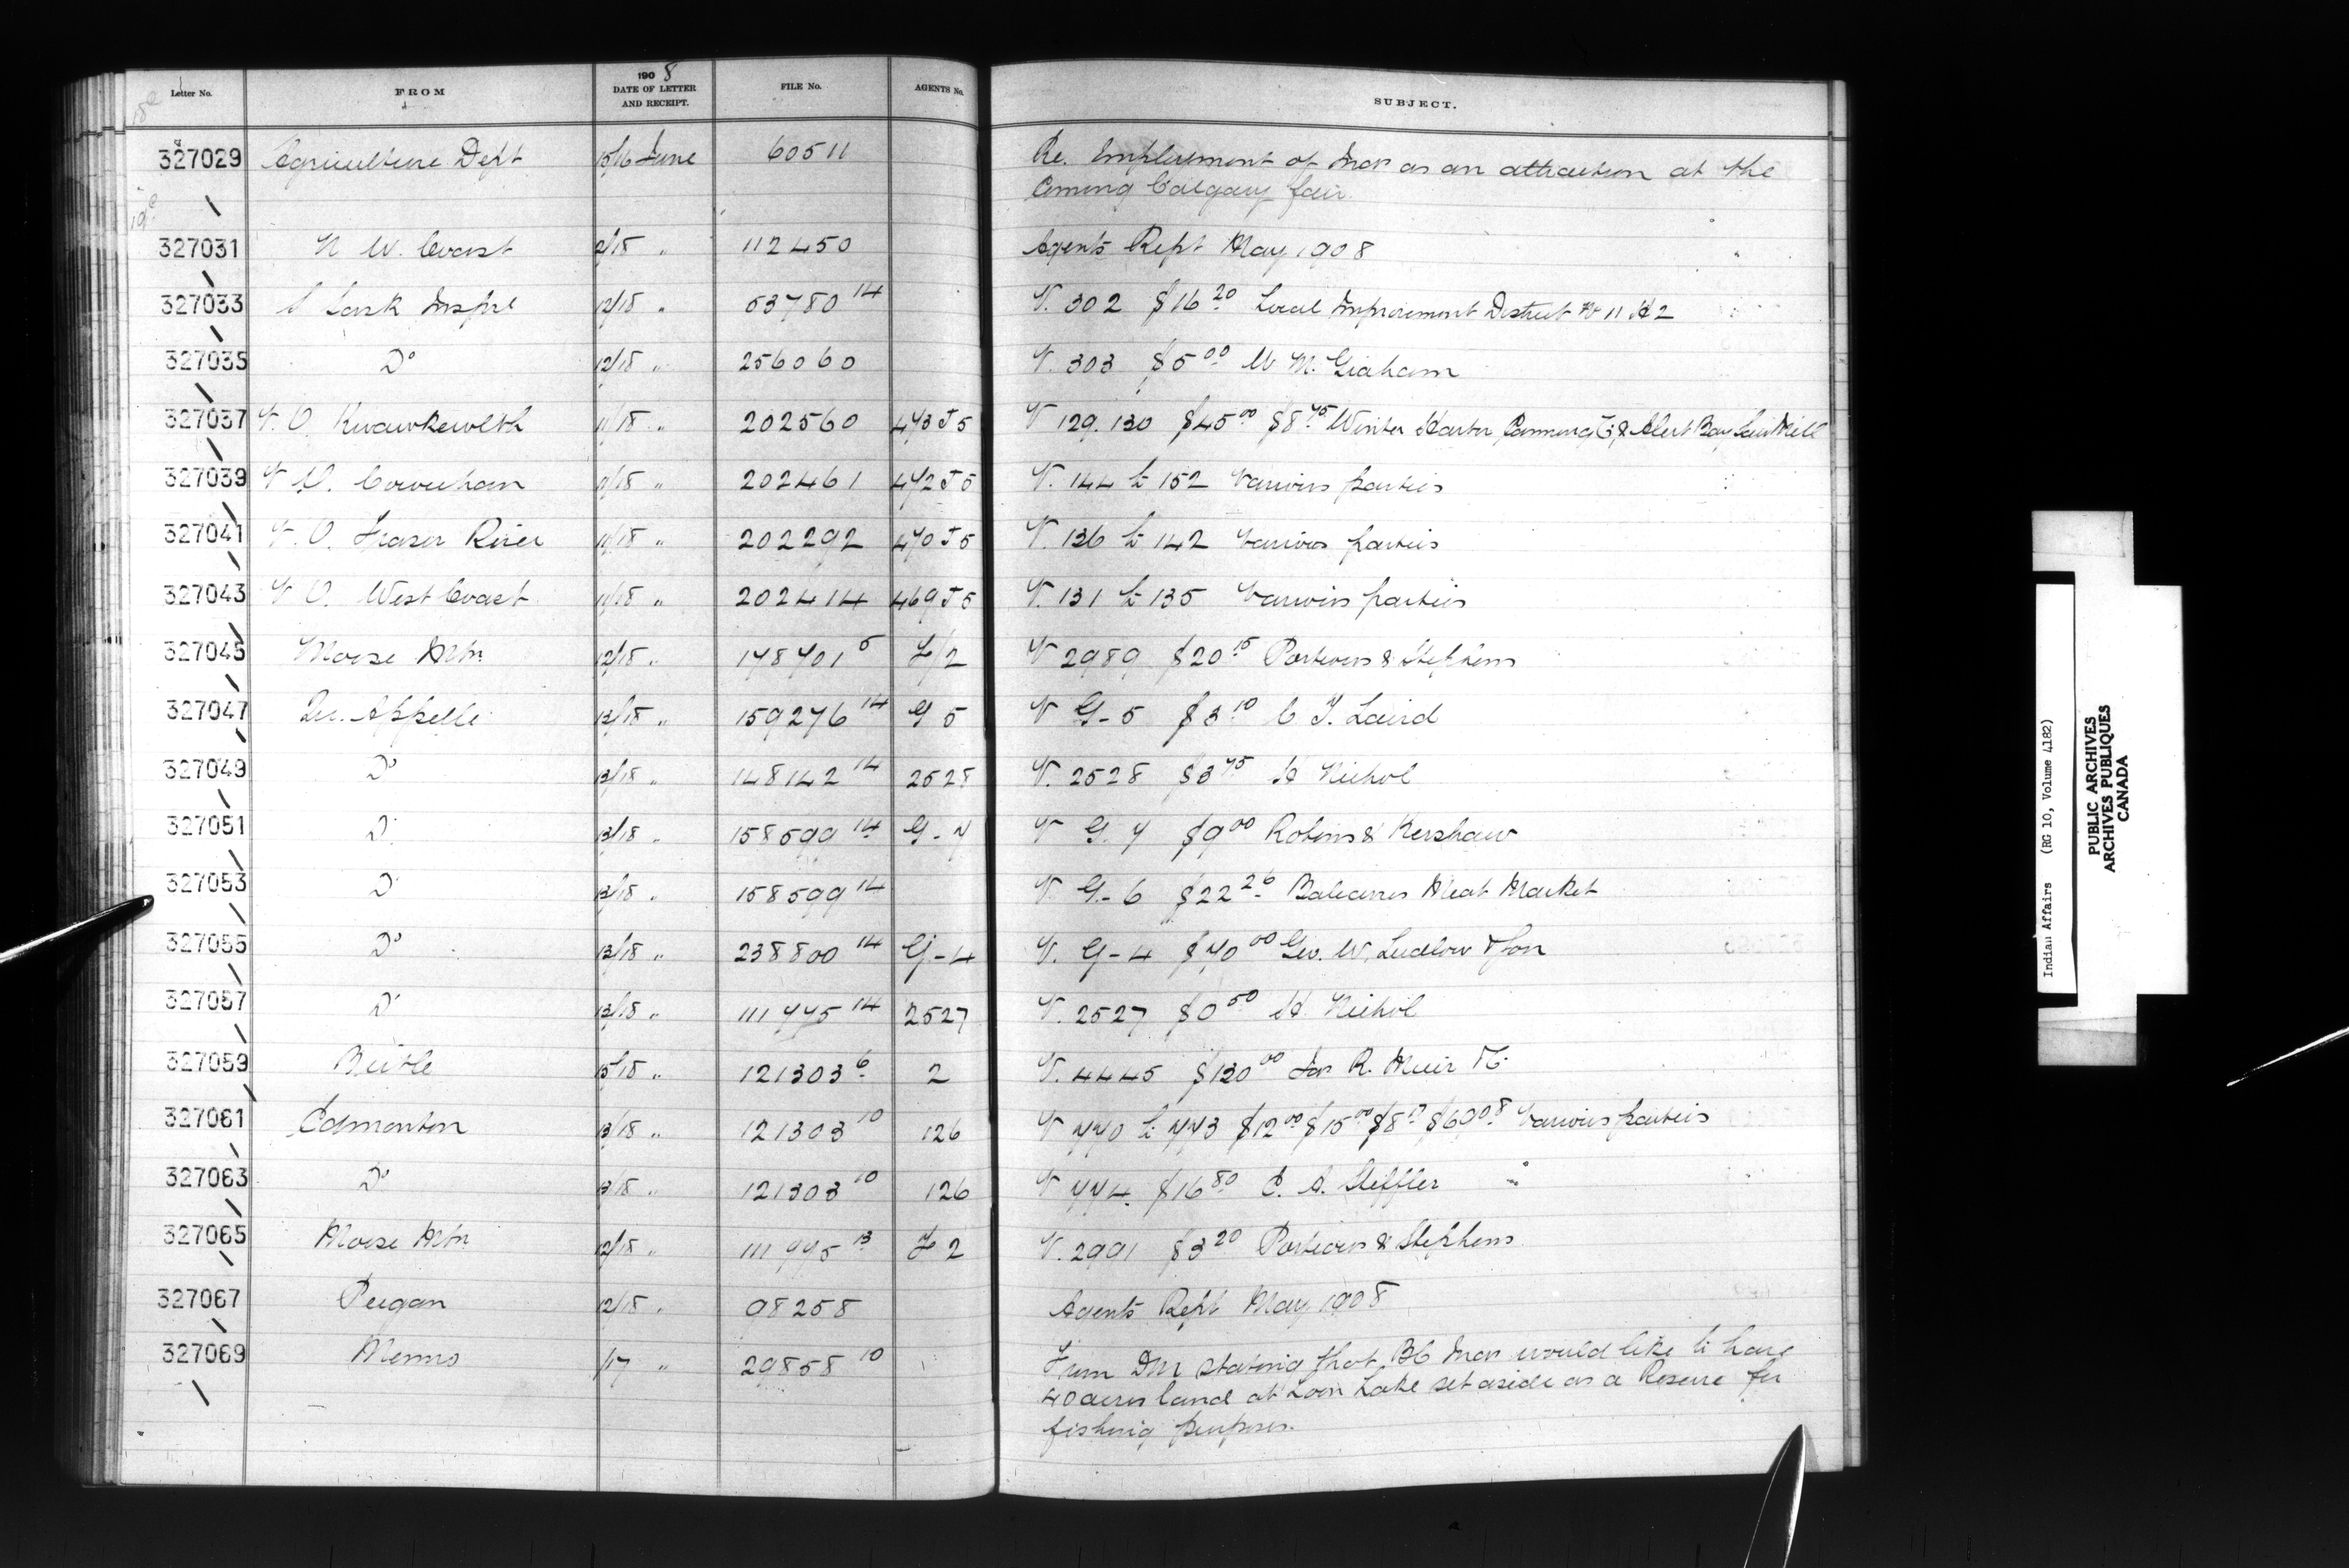 Letter No. FROM 1908 DATE OF LETTER AND RECEIPT. FILE No. AGENTS No. SUBJECT.
327029 Agriculture Dept 15/16 June 60511 Re. Employment of Inds as an attraction at the
Coming Calgary fair.
327031 N W. Coast 2/18 " 112450 Agents Rept May 1908
327033 S Sask Inspr 12/18 " 53780 14 V. 302 $16 20 Local Improvement District No 11 H 2
327035 Do 12/18 " 256060 V. 303 $5 00 W M. Graham
327037 V. O. Kwawkewlth 11/18 " 202560 473 J5 V 129. 130 $45 00 $8 75 Winter Harbor Canning Co & Alert Bay Saw Mill
327039 V O. Cowichan 9/18 " 202461 472 J5 V. 144 to 152 Various parties
327041 V. O. Fraser River 11/18 " 202292 470 J5 V. 136 to 142 Various parties
327043 V O. West Coast 11/18 " 202414 469 J5 V. 131 to 135 Various parties
327045 Moose Mtn 12/18 " 148701 5 V 2989 $20 15 Porteous & Stephens
327047 Qu. Appelle 13/18 " 159276 14 G 5 V G-5 $3 10 C T. Laird
327049 Do 13/18 " 148142 14 2528 V. 2528 $3 75 H Nichol
327051 Do 13/18 " 158599 14 G-7 V G. 7 $9 00 Robins & Kershaw
327053 Do 13/18 " 158599 14 V G-6 $22 26 Balcarres Meat Market
327055 Do 13/18 " 238800 14 G-4 V. G-4 $70 00 Geo. W. Ludlow & Son
327057 Do 13/18 " 111775 14 2527 V. 2527 $0 50 H Nichol
327059 Birtle 15/18 " 121303 6 2 V. 4445 $130 00 R. Muir & Co
327061 Edmonton 13/18 " 121303 10 126 V 770 to 773 $12 00 $15 00 Various parties
327063 Do 13/18 " 121303 10 126 V 774 $16 80 E. A. Steffler
327065 Moose Mtn 12/18 " 13 V. 2991 $3 20 Porteous & Stephens
327067 Peigan 12/18 " 98258 Agents Rept May 1908
327069 Memo /17 " 29858 10 From DM stating that BC Inds would like to have
40 acres land at Loon Lake set aside as a Reserve for
fishing purposes.
Indian Affairs (RG 10, Volume 4182)
PUBLIC ARCHIVES
ARCHIVES PUBLIQUES
CANADA